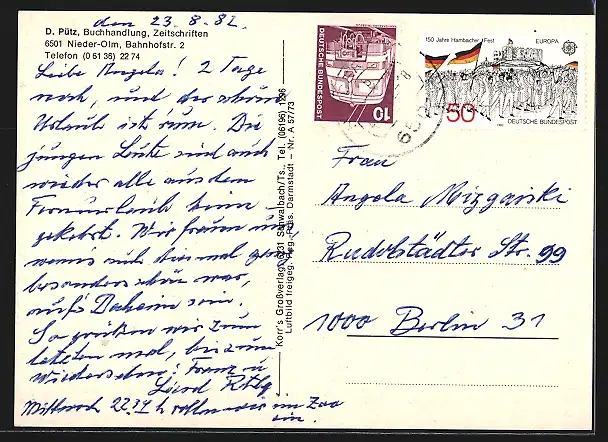 den 23.8.82.
D. Pütz, Buchhandlung, Zeitschriften
6501 Nieder-Olm, Bahnhofstr. 2
Telefon (0 51 36) 22 74
Liebe Angela! 2 Tage
noch, und der schöne
Urlaub ist rum. Die
jungen Leute sind auch
wieder alle aus dem
Fernurlaub heim
gekehrt. Wir freuen uns
wenns auch diesmal ganz
besonders schön war,
aufs Daheim sein.
So grüßen wir zum
letzten mal, bis zum
Wiedersehen! Franz u
Mittwoch 22 wir im Zoo
ein.
Korr's Großverlag, 6231 Schwalbach/Ts., Tel. (06196)
Luftbild freigeg. Reg.-Präs. Darmstadt – Nr. A 57/73
DEUTSCHE BUNDESPOST
10
150 Jahre Hambacher Fest
EUROPA
50
DEUTSCHE BUNDESPOST
Frau
Angela Mizgajski
Rudolstädter Str. 99
1000 Berlin 31